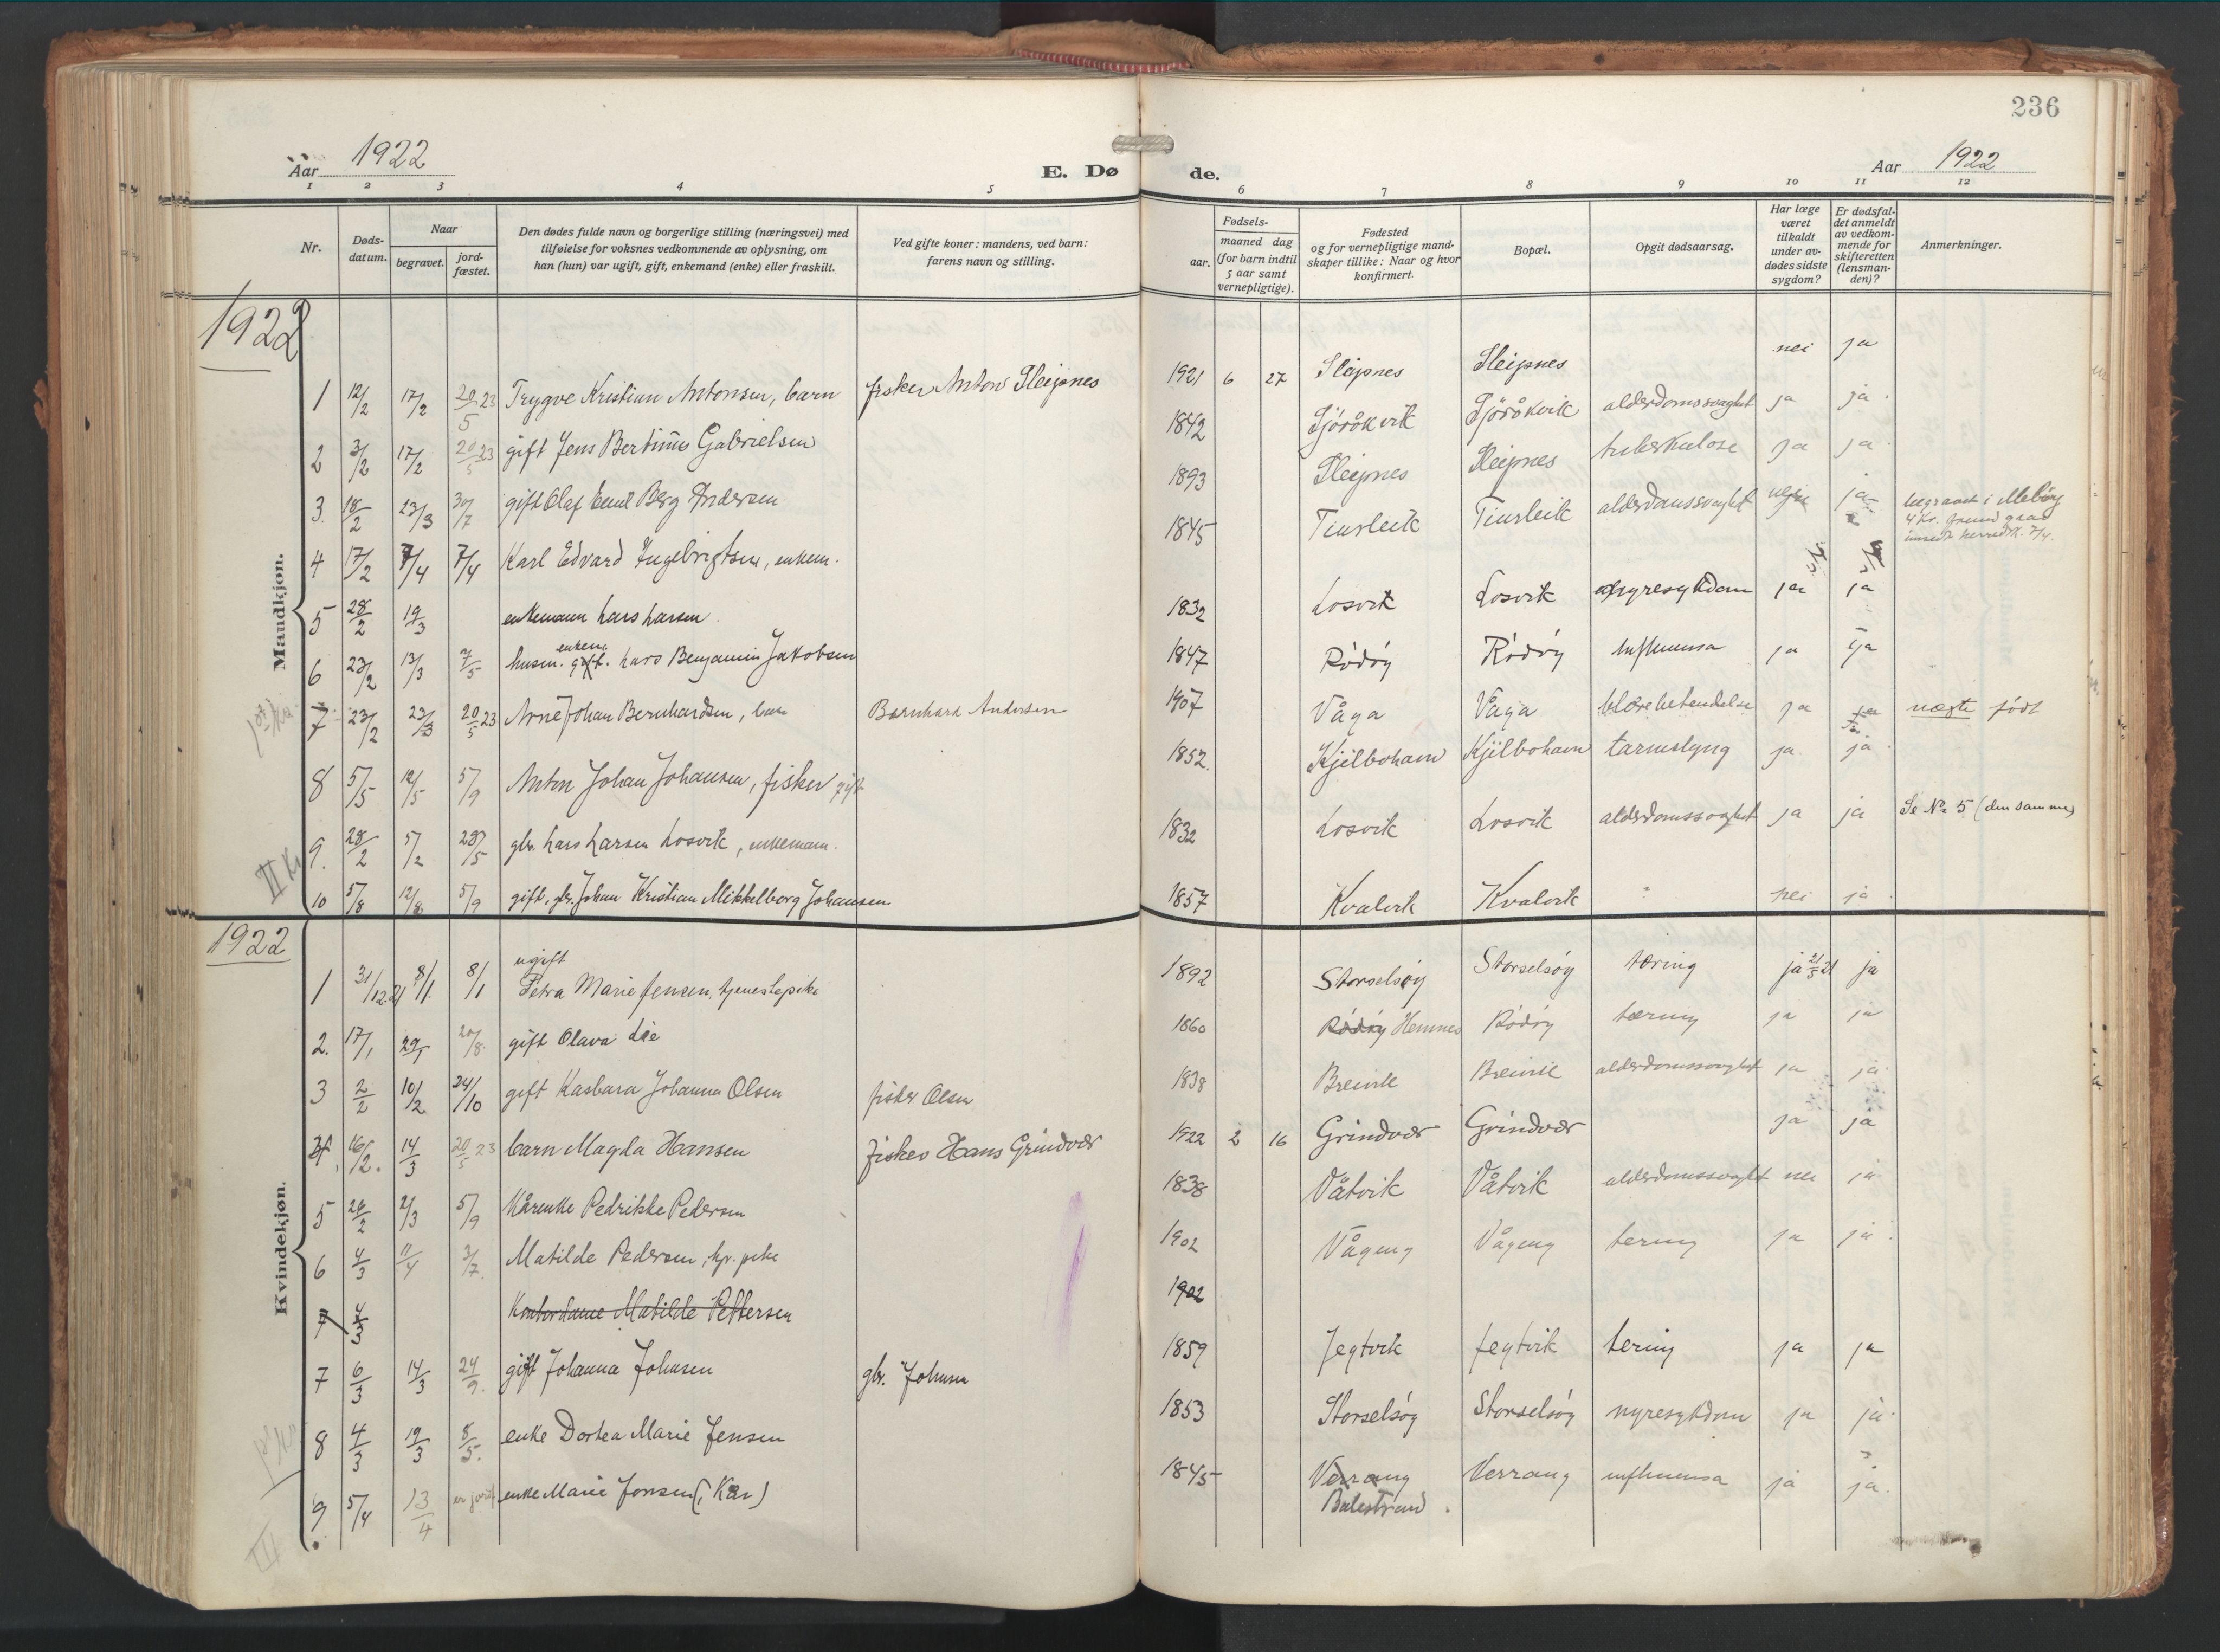 236
Aar 1922
E. Dø
de.
Aar 1922
1 2 3 4 5 6 7 8 9 10 11 12
Nr.
Døds-
datum.
Naar
begravet.
jord-
fæstet.
Den dødes fulde navn og borgerlige stilling (næringsvei) med
tilføielse for voksnes vedkommende av oplysning, om
han (hun) var ugift, gift, enkemand (enke) eller fraskilt.
Ved gifte koner: mandens, ved barn:
farens navn og stilling.
Fødsels-
aar.
maaned dag
(for barn indtil
5 aar samt
vernepligtige).
Fødested
og for vernepligtige mand-
skaper tillike: Naar og hvor
konfirmert.
Bopæl.
Opgit dødsaarsag.
Har læge
været
tilkaldt
under av-
dødes sidste
sygdom?
Er dødsfal-
det anmeldt
av vedkom-
mende for
skifteretten
(lensman-
den)?
Anmerkninger.
1922
Mandkjøn.
1 12/2 17/2 20/5 23 Trygve Kristian Antonsen, barn fisker Anton Sleipnes 1921 6 27 Sleipnes Sleipnes nei ja
2 3/2 17/2 20/5 23 gift Jens Bertinus Gabrielsen 1842 Sjöråkvik Sjöråkvik alderdomssvaghet ja ja
3. 18/2 23/3 30/7 gift Olaf Emil Berg Andersen 1893 Sleipnes Sleipnes tuberkulose ja ja
4 17/2 7/4 7/4 Karl Edvard Ingebrigtsen, enkem. 1845 Tinsleik Tinsleik alderdomssvaghet ja begravet i
5 28/2 19/3 enkemann Lars Larsen 1832 Losvik Losvik nyresykdom ja ja
6 23/2 13/3 7/5 husm. enkem. gift. Lars Benjamin Jakobsen 1847 Rödöy Rödöy Influensa ja ja
7 23/2 23/3 20/5 23 Arne Johan Bernhardsen, barn Bernhard Andersen 1907 Våga Våga blærebetendelse ja ja uegte født
8 5/5 12/5 5/9 Anton Johan Johansen, fisker gift 1852. Kjilbohavn Kjilbohavn tarmslyng ja ja
9. 28/2 5/2 28/5 gbr. Lars Larsen Losvik, enkemann. 1832 Losvik Losvik alderdomssvaghet ja ja Se No 5 (den samme)
10 5/8 12/8 5/9 gift, gbr. Johan Kristian Mikkelborg Johansen 1857 Kvalvik Kvalvik " nei ja
1922
Kvindekjøn.
1 31/12 21 8/1 8/1 ugift Petra Marie Jensen, tjenestepike 1892 Storselsöy Storselsöy tæring ja 21/5 21 ja
2. 17/1 29/1 20/8 gift Olava Lie 1860 Rödöy Hemnes Rödöy tæring ja ja
3 2/2 10/2 24/10 gift Kasbara Johanna Olsen fisker Olsen 1838 Breivik Breivik alderdomssvaghet ja ja
4. 16/2. 14/3 20/5 23 barn Magda Hansen fisker Hans Grindvær 1922 2 16 Grindvær Grindvær ja ja
5 20/2 2/3 5/9 Kårenke Pedrikke Pedersen 1838 Våtvik Våtvik alderdomssvaghet nei ja
6 4/3 11/4 3/7. Matilde Pedersen, pike 1902 Vågeng Vågeng tering ja ja
7 4/3 Kontordame Matilde Pettersen 1902
7 6/3 14/3 24/9. gift Johanna Johnsen gbr. Johnsen 1859 Jegtvik Jegtvik tering ja ja
8 4/3 19/3 8/5. enke Dortea Marie Jensen 1853 Storselsöy Storselsöy nyresykdom ja ja
9 5/4 13/4 enke Marie Jensen 1845 Verrang Verrang influensa ja ja
Balestrand.